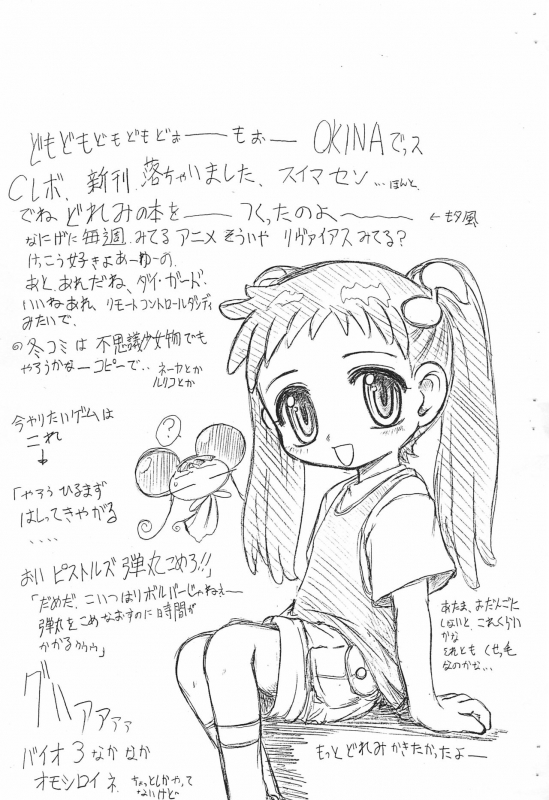 どもどもどもどもどぉーーもぉー OKINAでっス
CLレボ、新刊 落ちゃいました、スイマセン…ほんと、
でね どれみの本をーーつくったのよーーー ←もタ風
なにげに毎週みてるアニメ そういや リヴァイアスみてる？
けっこう好きよあーゆーの、
あと、あれだね、ダイ・ガード、
いいねあれ、リモートコントロールダンディ
みたいで、
◎冬コミは 不思議少女物でも
やろうかなーコピーで‥ ネーカとか
ルリコとか
今やりたいゲームは
これ
↓
「やろう ひるまず
はしってきやがる
‥‥
おい ピストルズ 弾丸こめろ!!」
「だめだ、こいつはリボルバーじゃねぇー
弾丸をこめなおすのに時間が
かかるゥゥゥ」
グハァアァァ
バイオ3 なかなか
オモシロイネ、ちょっとしかやって
ないけど
?
あたま、おだんごに
しないと、これくらい
かな
それとも くせっ毛
なのかな、‥
もっと どれみ かきたかったよー